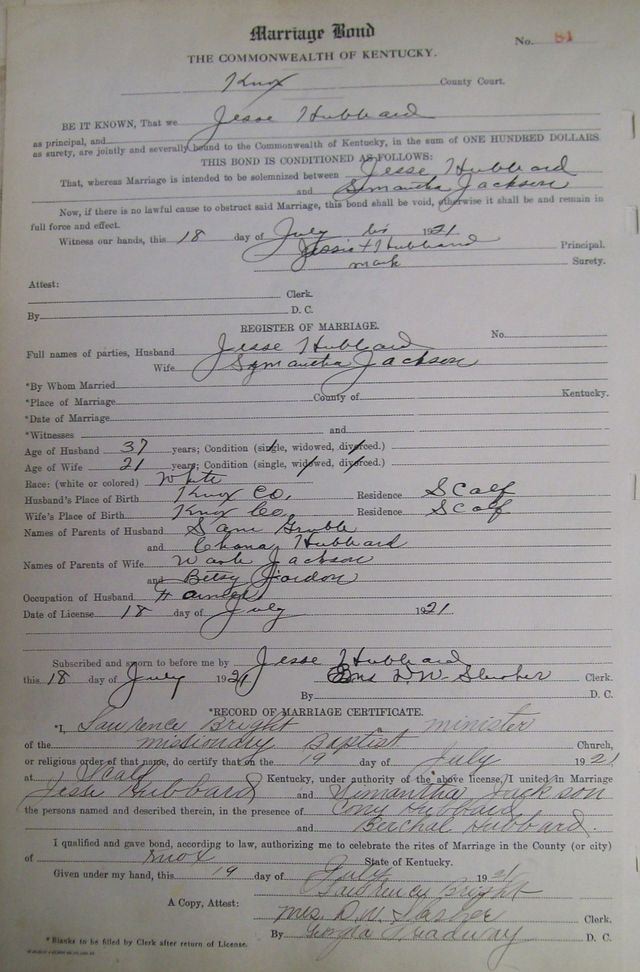 Marriage Bond
No. 81
THE COMMONWEALTH OF KENTUCKY.
Knox County Court.
BE IT KNOWN, That we Jesse Hubbard
as principal, and
as surety, are jointly and severally bound to the Commonwealth of Kentucky, in the sum of ONE HUNDRED DOLLARS
THIS BOND IS CONDITIONED AS FOLLOWS:
That, whereas Marriage is intended to be solemnized between Jesse Hubbard
and Symantha Jackson
Now, if there is no lawful cause to obstruct said Marriage, this bond shall be void, otherwise it shall be and remain in
full force and effect.
Witness our hands, this 18 day of July 1921
his
Jessie X Hubbard Principal.
mark Surety.
Attest:
Clerk.
By D. C.
REGISTER OF MARRIAGE.
No.
Full names of parties, Husband Jesse Hubbard
Wife Symantha Jackson
*By Whom Married
*Place of Marriage County of Kentucky.
*Date of Marriage
*Witnesses and
Age of Husband 37 years; Condition (single, widowed, divorced.)
Age of Wife 21 years; Condition (single, widowed, divorced.)
Race: (white or colored) White
Husband's Place of Birth Knox Co. Residence Scalf
Wife's Place of Birth Knox Co. Residence Scalf
Names of Parents of Husband Sam Grubb
and Hubbard
Names of Parents of Wife Jackson
and Betsy Jordon
Occupation of Husband Farmer
Date of License 18 day of July 1921
Subscribed and sworn to before me by Jesse Hubbard
this 18 day of July 1921 Mrs D. W. Slusher Clerk.
By D. C.
*RECORD OF MARRIAGE CERTIFICATE.
*I, Lawrence Bright minister
of the missionary Baptist Church,
or religious order of that name, do certify that on the 19 day of July 1921
at Scalf Kentucky, under authority of the above license, I united in Marriage
Jesse Hubbard and Simantha Jackson
the persons named and described therein, in the presence of Hubbard
and Beichal Hubbard.
I qualified and gave bond, according to law, authorizing me to celebrate the rites of Marriage in the County (or city)
of Knox State of Kentucky.
Given under my hand, this 19 day of July 1921
Lawrency Bright
A Copy, Attest: Mrs. D. W. Slusher Clerk.
By Georgia Treadway D. C.
*Blanks to be filled by Clerk after return of License.